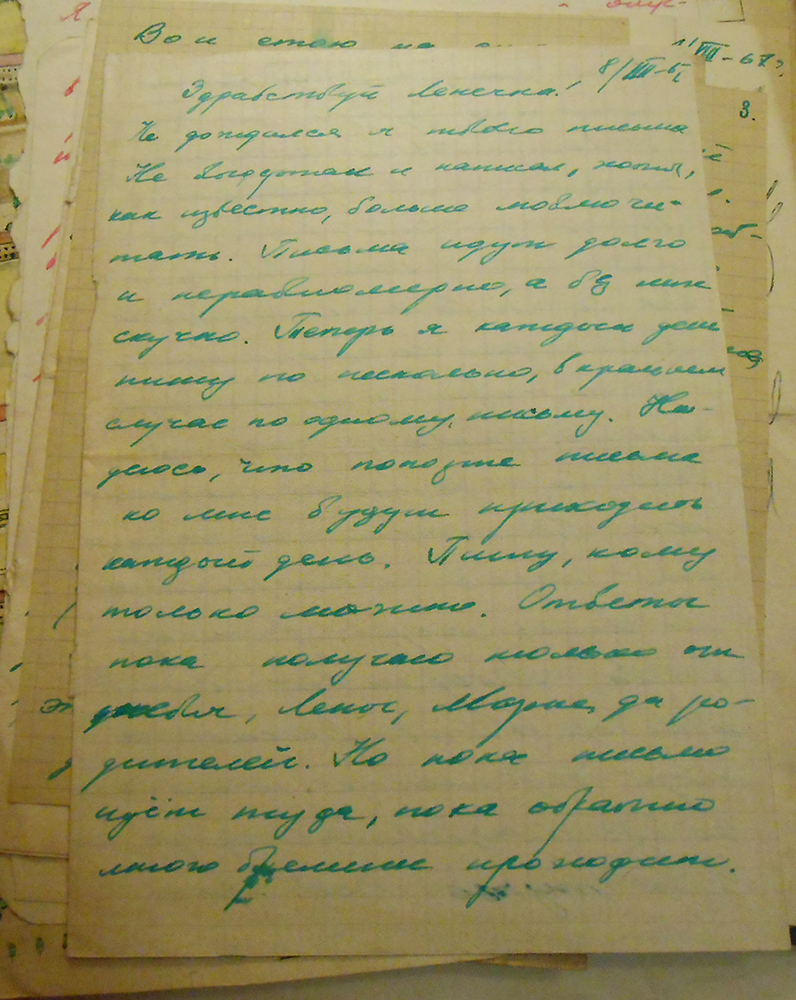 Вот стою на
11/VIII-67г.
3.
8/VIII-6
Здравствуй Леночка!
Не дождался я твоего письма
Не выдержал и написал, хотя,
как известно, больше мовлю чи-
тать. Письма идут долго
и неравномерно, а без них
скучно. Теперь я каждый день
пишу по несколько, в крайнем
случае по одному письму. На-
деюсь, что попозже письма
ко мне будут приходить
каждый день. Пишу, кому
только можно. Ответы
пока получаю только от
тебя, Лены, Марка, да ро-
дителей. Но пока письмо
идёт туда, пока обратно
много времени проходит.